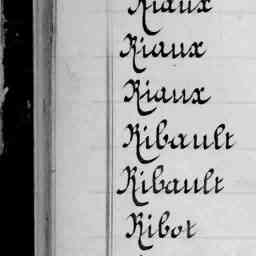 Riaux
Riaux
Riaux
Ribault
Ribault
Ribot